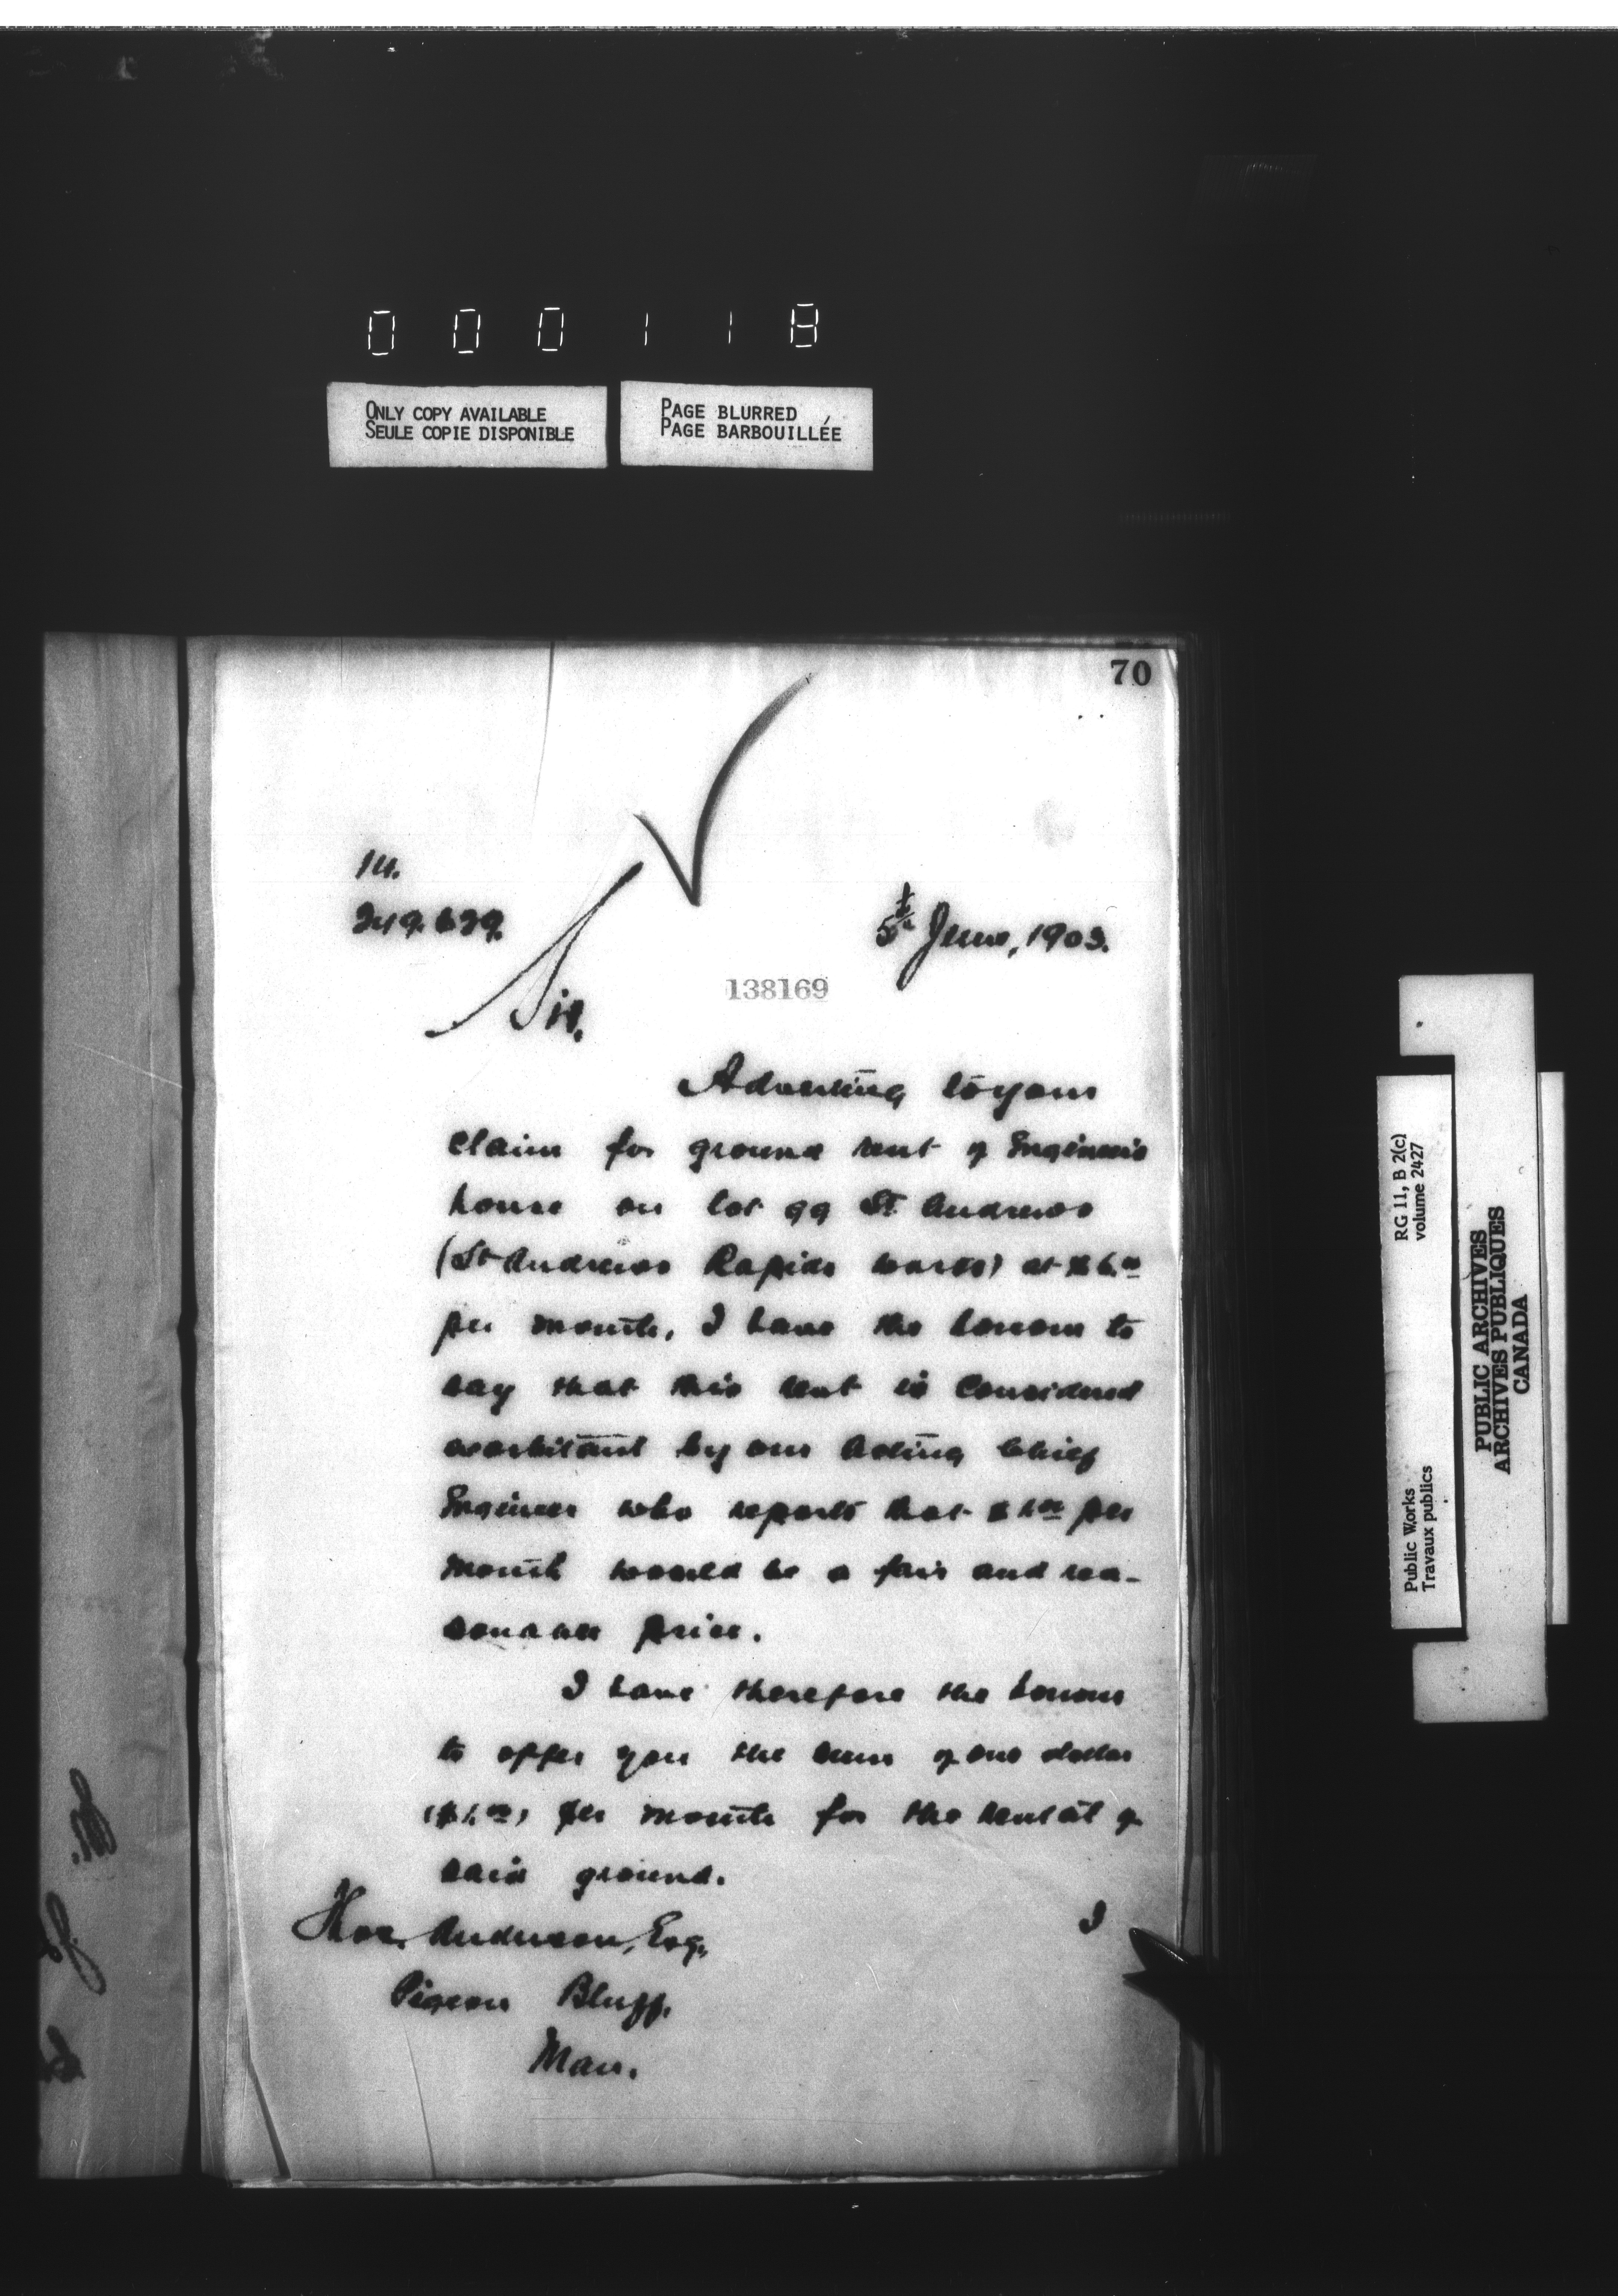 000118
ONLY COPY AVAILABLE
SEULE COPIE DISPONIBLE
PAGE BLURRED
PAGE BARBOUILLÉE
70
14.
249.639.
5th June, 1903.
138169
Sir,
Adverting to your
claim for ground rent of Engineer's
house on lot 99 St Andrews
(St Andrews Rapids works) at $6.00
per month, I have the honour to
say that this rent is considered
exorbitant by our Acting Chief
Engineer who reports that $1.00 per
month would be a fair and rea-
sonable price.
I have therefore the honour
to offer you the sum of one dollar
($1.00) per month for the rental of
said ground.
I
Anderson, Esq.,
Pigeon Bluff,
Man.
RG 11, B 2(c)
volume 2427
Public Works
Travaux publics
PUBLIC ARCHIVES
ARCHIVES PUBLIQUES
CANADA